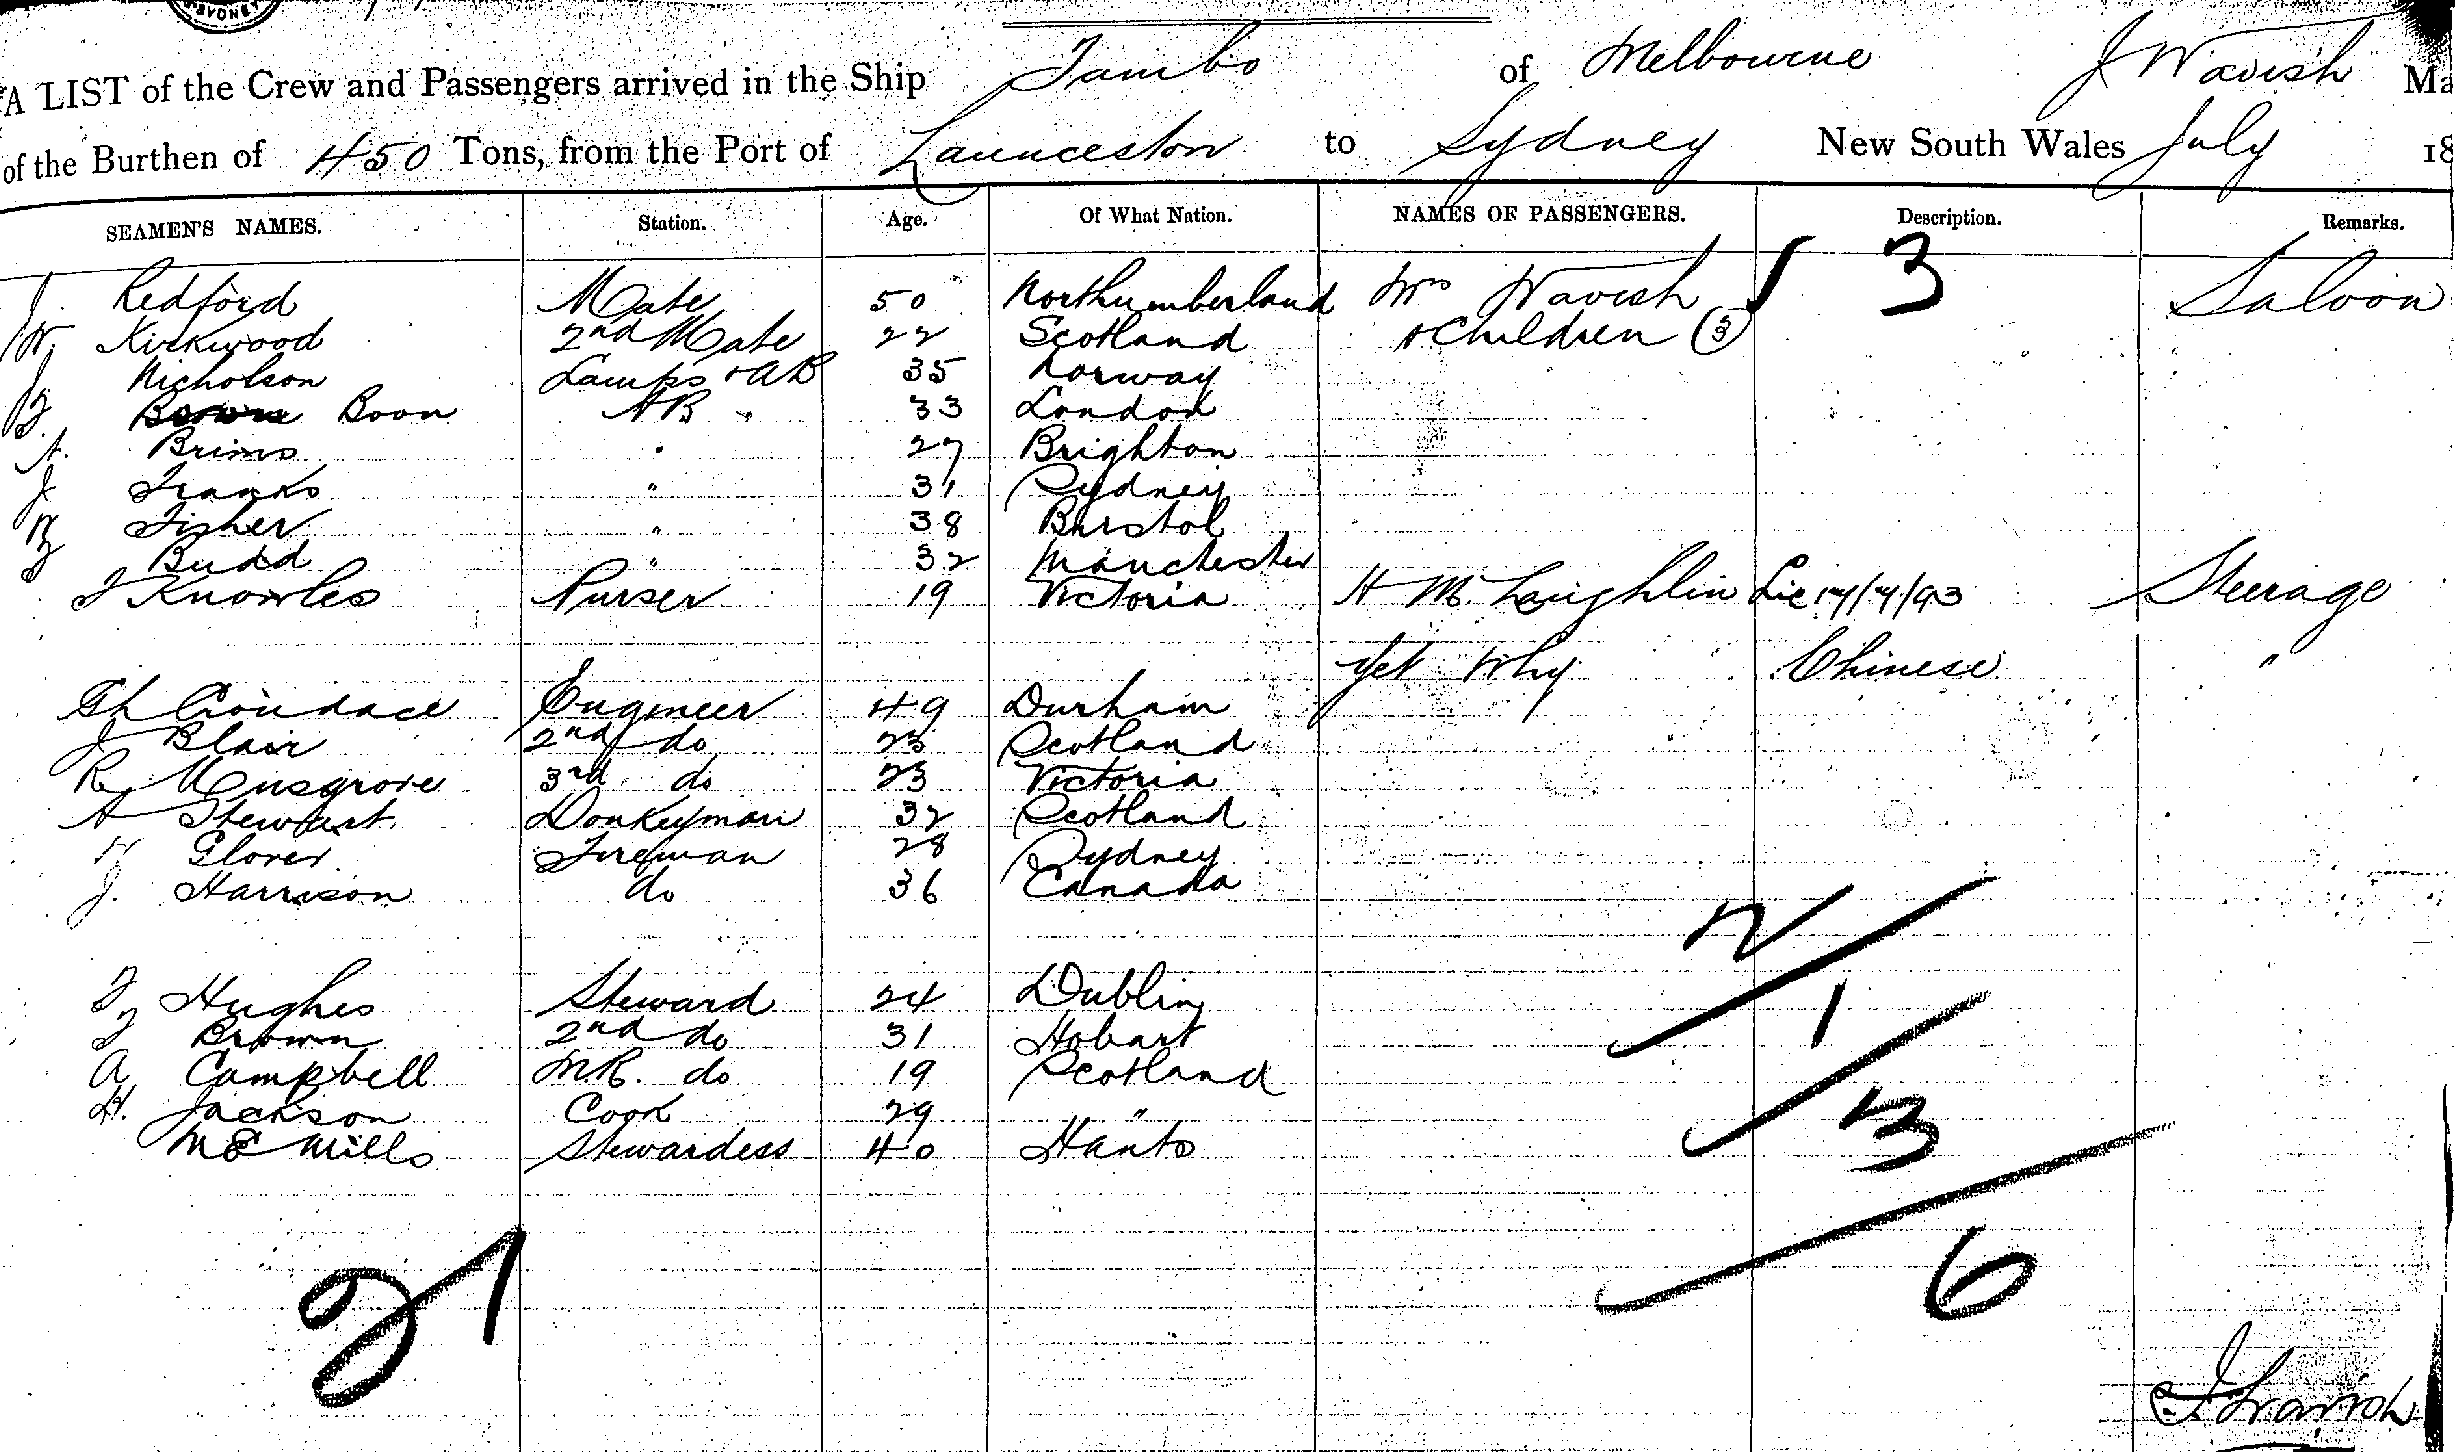 SYDNEY
A LIST of the Crew and Passengers arrived in the Ship Tambo of Melbourne J Wavish Ma
of the Burthen of 450 Tons, from the Port of Launceston to Sydney New South Wales July 18
SEAMEN'S NAMES. Station. Age. Of What Nation. NAMES OF PASSENGERS. Description. Remarks.
J Redford Mate 50 Northumberland Mrs Wavish 1 3 Saloon
W. Kirkwood 2nd Mate 22 Scotland + Children (3)
J Nicholson Lamps + AB 35 Norway
Boon AB " 33 London
A. Brims " 27 Brighton
J Franks " 31 Sydney
W Fisher " 38 Bristol
Budd " 32 Manchester
Knowles Purser 19 Victoria H McLaughlin Lic 14/4/93 Steerage
Yet Why Chinese "
Engineer 49 Durham
J Blair 2nd do 23 Scotland
R Musgrove 3rd do 23 Victoria
A Stewart Donkeyman 32 Scotland
W Glover Fireman 28 Sydney
J. Harrison do 36 Canada
2
Hughes Steward 24 Dublin 1
Brown 2nd do 31 Hobart
A Campbell M.R. do 19 Scotland
H. Jackson Cook 29 " 3
M E Mills Stewardess 40 Hants
21 6
J Wavish